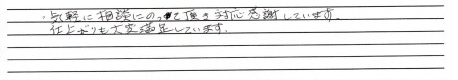 ・気軽に相談にのって頂き対応感謝しています。
仕上がりも大変満足しています。